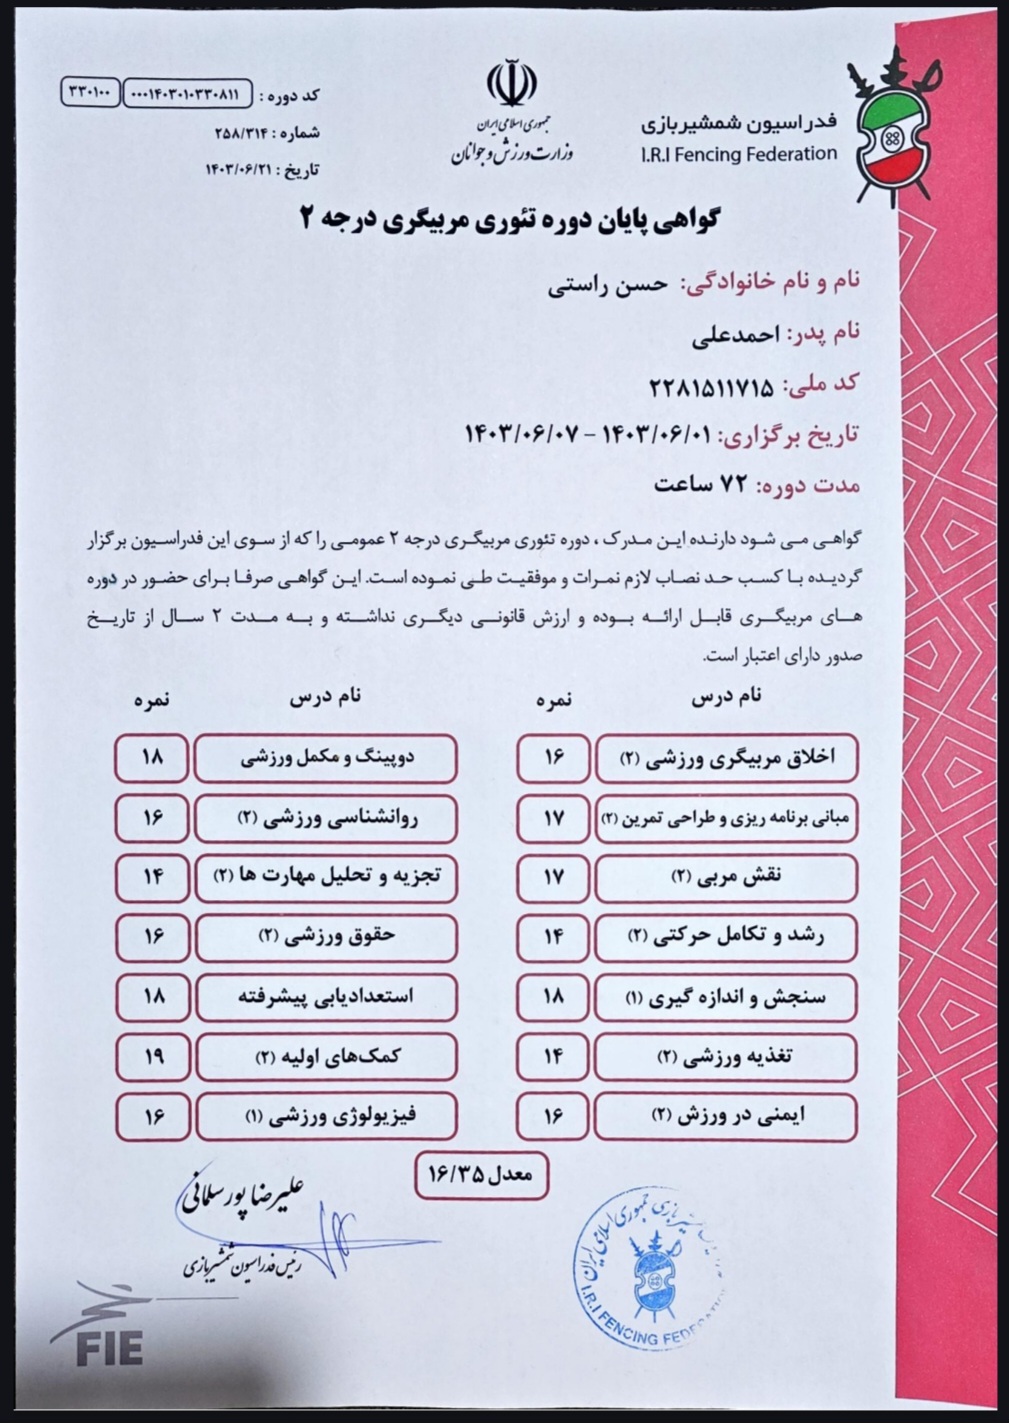 فدراسیون شمشیربازی
I.R.I Fencing Federation
جمهوری اسلامی ایران
وزارت ورزش و جوانان
کد دوره : ۰۰۰۱۴۰۳۰۱۰۳۳۰۸۱۱ ۳۳۰۱۰۰
شماره : ۲۵۸/۳۱۴
تاریخ : ۱۴۰۳/۰۶/۲۱
گواهی پایان دوره تئوری مربیگری درجه ۲
نام و نام خانوادگی: حسن راستی
نام پدر: احمدعلی
کد ملی: ۲۲۸۱۵۱۱۷۱۵
تاریخ برگزاری: ۱۴۰۳/۰۶/۰۱ – ۱۴۰۳/۰۶/۰۷
مدت دوره: ۷۲ ساعت
گواهی می شود دارنده این مدرک ، دوره تئوری مربیگری درجه ۲ عمومی را که از سوی این فدراسیون برگزار
گردیده با کسب حد نصاب لازم نمرات و موفقیت طی نموده است. این گواهی صرفا برای حضور در دوره
های مربیگری قابل ارائه بوده و ارزش قانونی دیگری نداشته و به مدت ۲ سال از تاریخ
صدور دارای اعتبار است.
نام درس نمره نام درس نمره
اخلاق مربیگری ورزشی (۲) ۱۶ دوپینگ و مکمل ورزشی ۱۸
مبانی برنامه ریزی و طراحی تمرین (۲) ۱۷ روانشناسی ورزشی (۲) ۱۶
نقش مربی (۲) ۱۷ تجزیه و تحلیل مهارت ها (۲) ۱۴
رشد و تکامل حرکتی (۲) ۱۴ حقوق ورزشی (۲) ۱۶
سنجش و اندازه گیری (۱) ۱۸ استعدادیابی پیشرفته ۱۸
تغذیه ورزشی (۲) ۱۴ کمک‌های اولیه (۲) ۱۹
ایمنی در ورزش (۲) ۱۶ فیزیولوژی ورزشی (۱) ۱۶
معدل ۱۶/۳۵
علیرضا پورسلمانی
رئیس فدراسیون شمشیربازی
جمهوری اسلامی ایران
I.R.I FENCING
FIE